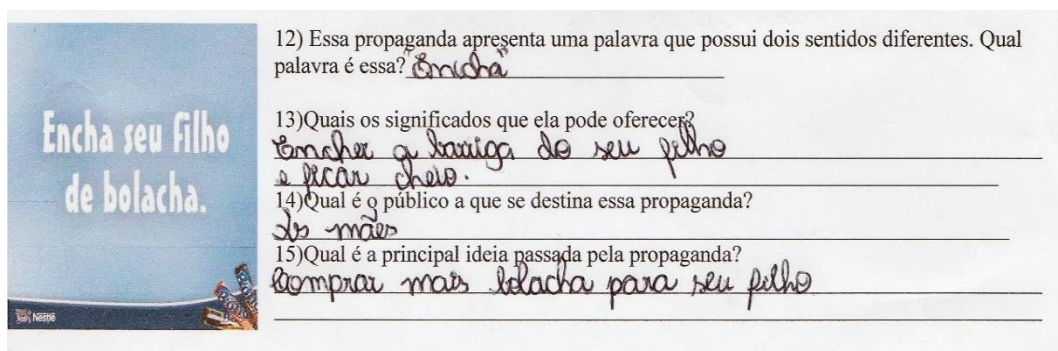 Encha seu filho
de bolacha.
Nestlé
12) Essa propaganda apresenta uma palavra que possui dois sentidos diferentes. Qual
palavra é essa? "Encha"
13)Quais os significados que ela pode oferecer?
Encher a barriga do seu filho
e ficar cheio.
14)Qual é o público a que se destina essa propaganda?
As mães
15)Qual é a principal ideia passada pela propaganda?
Comprar mais bolacha para seu filho